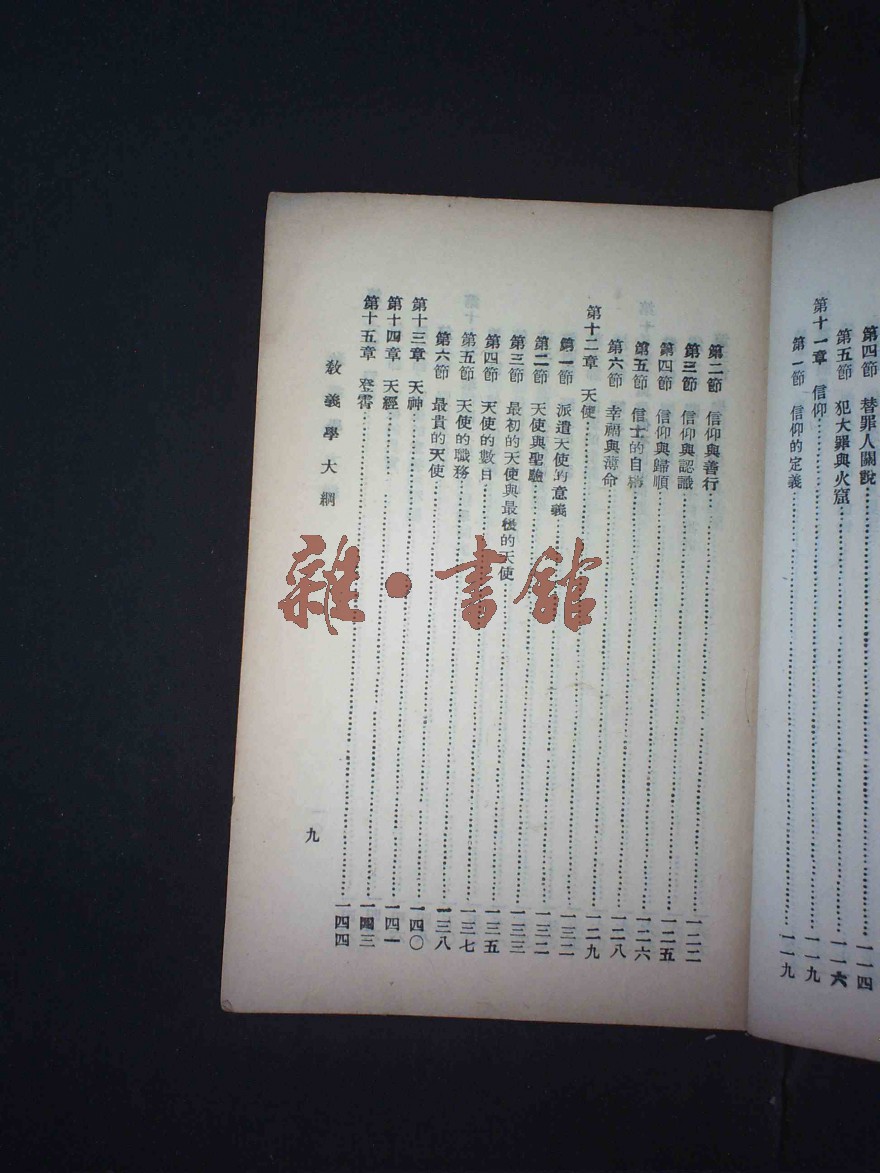 第四節 替罪人關說 一一四
第五節 犯大罪與火窟 一一六
第十一章 信仰 一一九
第一節 信仰的定義 一一九
第二節 信仰與善行 一二二
第三節 信仰與認識 一二五
第四節 信仰與歸順 一二六
第五節 信士的自稱 一二八
第六節 幸福與薄命 一二九
第十二章 天使 一三二
第一節 派遣天使的意義 一三二
第二節 天使與聖驗 一三三
第三節 最初的天使與最後的天使 一三五
第四節 天使的數目 一三七
第五節 天使的職務 一三八
第六節 最貴的天使 一四〇
第十三章 天神 一四一
第十四章 天經 一四三
第十五章 登霄 一四四
教義學大綱
九
雜·書館